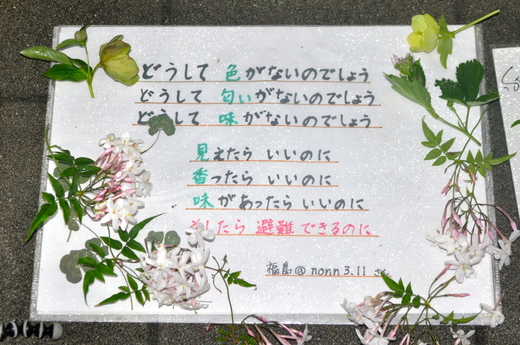 どうして 色がないのでしょう
どうして 匂いがないのでしょう
どうして 味がないのでしょう
見えたら いいのに
香ったら いいのに
味があったら いいのに
したら 避難できるのに
福島@nonn 3.11